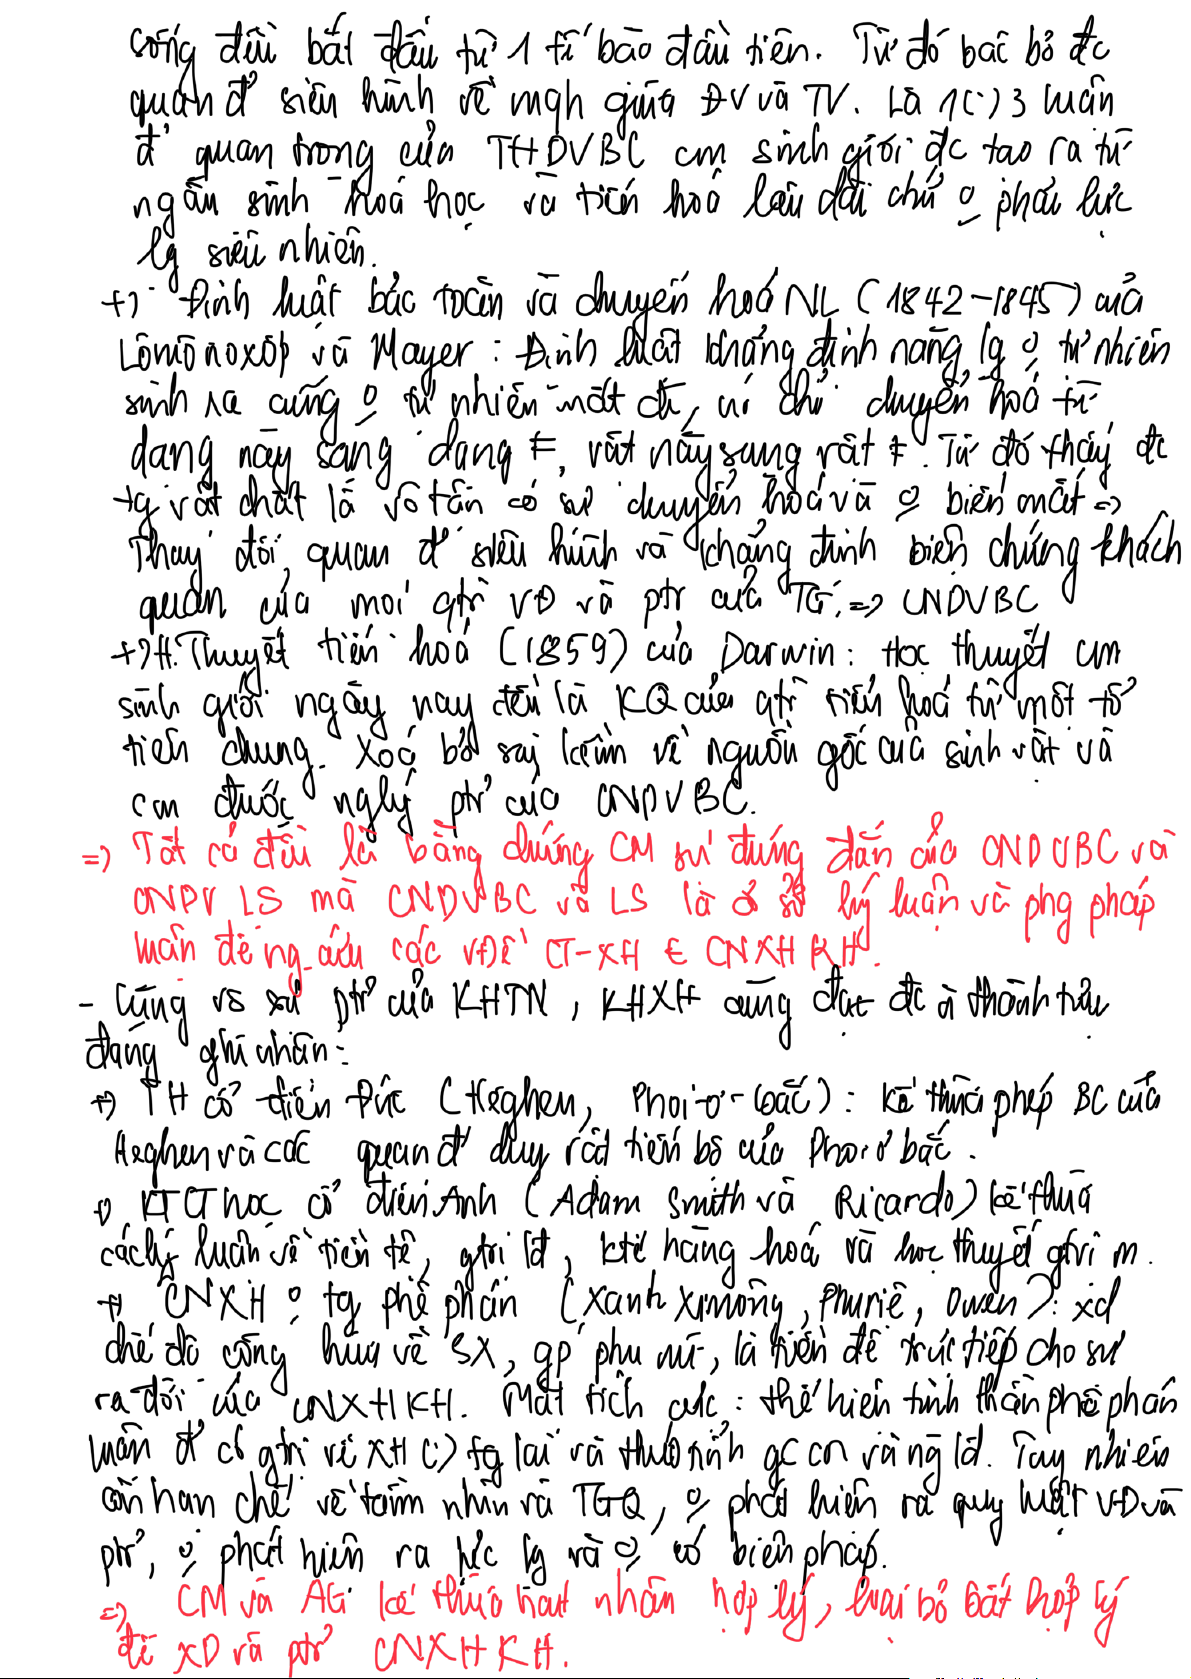 sống đều bắt đầu từ 1 tế bào đầu tiên. Từ đó bác bỏ đc
quan đ' siêu hình về mqh giữa ĐV và TV. Là 1 (:) 3 luận
đ' quan trọng của THDVBC cm sinh giới đc tạo ra từ
ngẫu sinh hoá học và tiến hoá lâu dài chứ o phải lực
lg siêu nhiên.
+) Định luật bảo toàn và chuyển hoá NL (1842-1845) của
Lômônoxốp và Mayer: Định luật khẳng định năng lg o tự nhiên
sinh ra cũng o tự nhiên mất đi, nó chỉ chuyển hoá từ
dạng này sang dạng ≠, vật này sang vật ≠. Từ đó thấy đc
tg vật chất là vô tận có sự chuyển hoá và o biến mất =>
Thay đổi quan đ' siêu hình và khẳng định biện chứng khách
quan của mọi qtr VĐ và ptr của TG. => CNDVBC
+) H.Thuyết tiến hoá (1859) của Darwin: Học thuyết cm
sinh giới ngày nay đều là KQ của qtr tiến hoá từ một tổ
tiên chung. Xoá bỏ sai lầm về nguồn gốc của sinh vật và
cm được nglý ptr' của CNDVBC.
=> Tất cả đều là bằng chứng CM sự đúng đắn của CNDVBC và
CNDV LS mà CNDVBC và LS là cơ sở lý luận và phg pháp
luận để ng.cứu các vđề CT-XH ∈ CNXHKH.
- Cùng vs sự ptr' của KHTN, KHXH cũng đạt đc ~ thành tựu
đáng ghi nhận:
+) TH cổ điển Đức (Heghen, Phoi-ơ-bắc): kế thừa phép BC của
Heghen và các quan đ' duy vật tiến bộ của Phoiơbắc.
+) KTCT học cổ điển Anh (Adam Smith và Ricardo) kế thừa
các lý luận về tiền tệ, gtri lđ, ktế hàng hoá và học thuyết gtri m.
+) CNXH o tg phê phán (Xanh Ximông, Phuriê, Owen): xd
chế độ công hữu về SX, gp' phụ nữ, là tiền đề trực tiếp cho sự
ra đời của CNXHKH. Mặt tích cực: thể hiện tinh thần phê phán
luận đ' có gtri về XH (:) tg lai và thức tỉnh gc cn và ng lđ. Tuy nhiên
còn hạn chế về tầm nhìn và TGQ, o phát hiện ra quy luật VĐ và
ptr', o phát hiện ra lực lg và o có biện pháp.
=> CM và AG kế thừa hạt nhân hợp lý, loại bỏ bất hợp lý
để XD và ptr' CNXHKH.